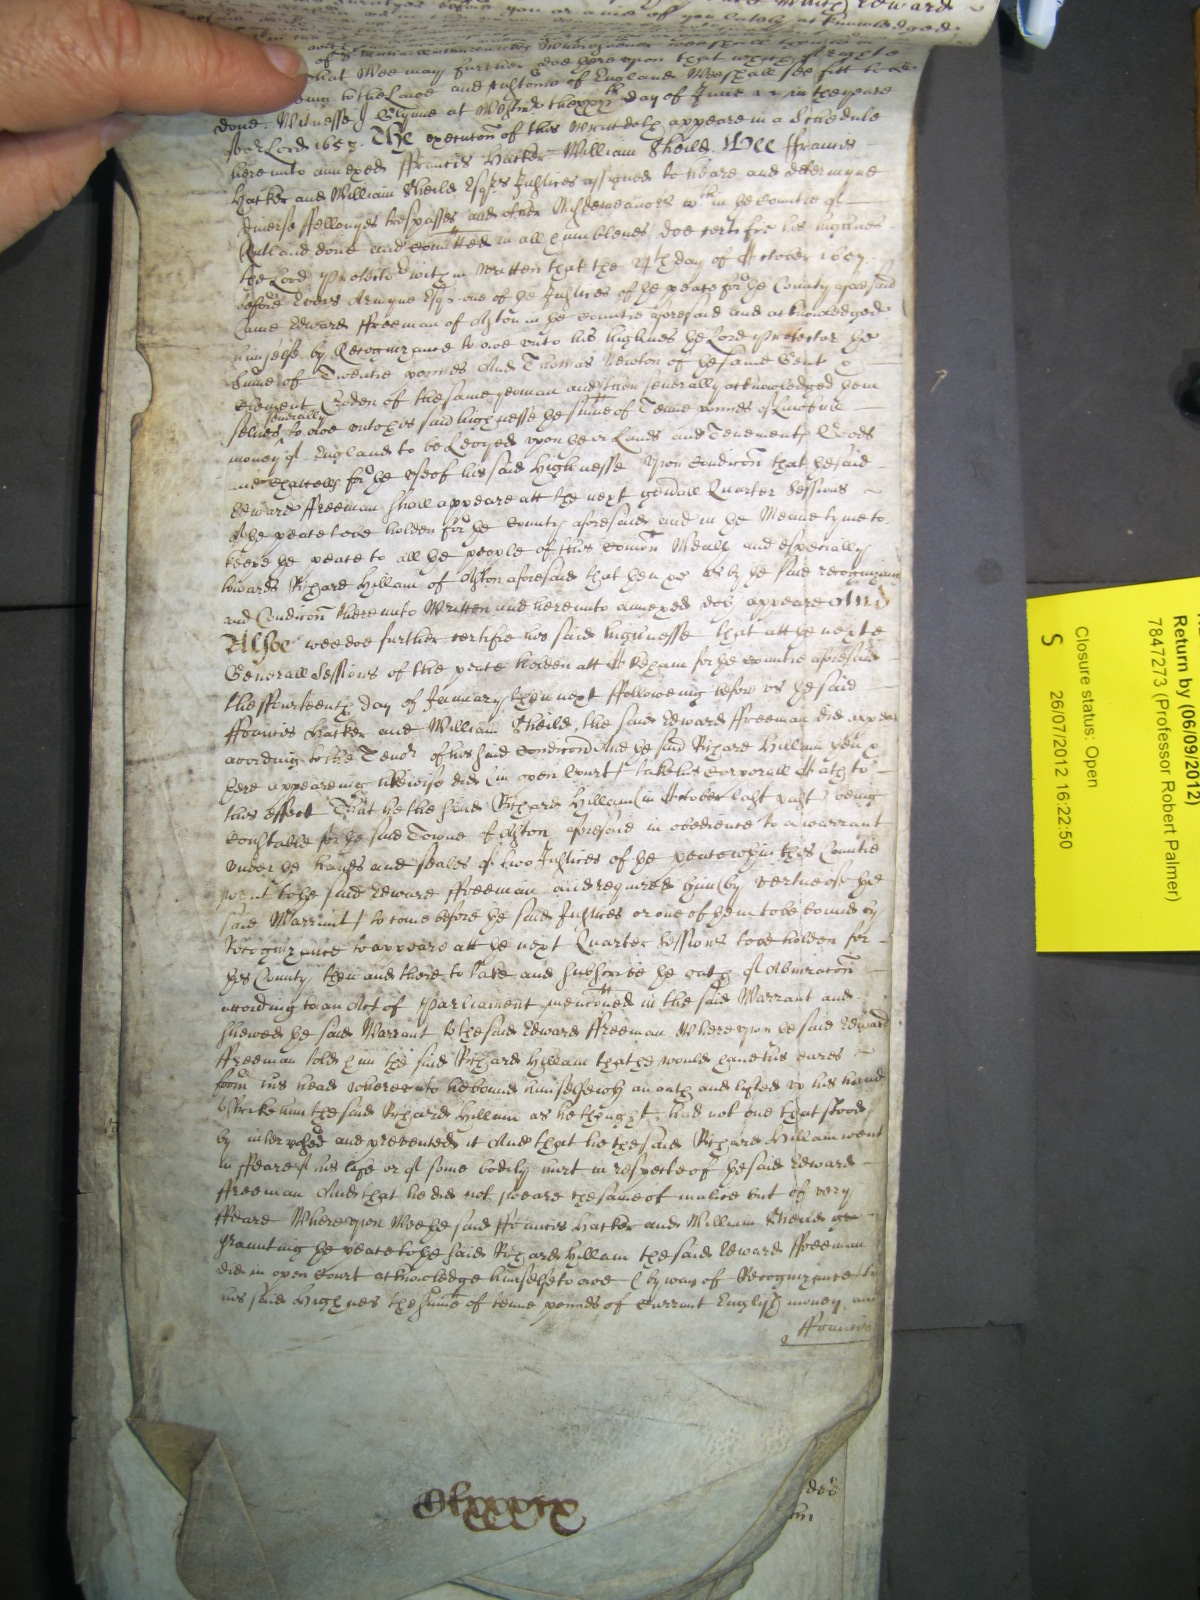 that wee may further doe here upon that which of right
to the Lawe and Custome of England wee shall see fitt to be
done. Witnesse J Glynne at Westmr the day of June in the yeare
of or Lord 1658. The execucon of this writt doth appeare in a Scedule
here unto annexed ffrancis Hacker William Sheild. Wee ffrancis
Hacker and William Sheild Esqrs Justices assigned to heare and determyne
diverse ffellonyes trespasses and other Misdemeanors wth in the Countie of
Rutland done and comitted in all humblenes doe certifie his highnes
the Lord Protector within written that the day of October 1657
before Evers Armyne Esqr one of the Justices of the peace for the County aforesaid
Came Edward ffreeman of Ashton in the Countie aforesaid and acknowledged
himselfe by Recognizance to owe unto his highnes the Lord Protector the
Sume of Twentie pounds And Thomas Newton of the same Gent
Clement of the same yeoman and then severally acknowledged them
selves severally to owe unto his said highnesse the sume of Tenne pounds of Lawfull
money of England to be Levyed upon their Lands and Tenements Goods
and Chattells for the use of his said Highnesse Upon Condicon that the said
Edward ffreeman shall appeare att the next generall Quarter Sessions
of the peace to be holden for the County aforesaid and in the Meane tyme to
keepe the peace to all the people of this Comon Wealth and especially
towards Richard Hillam of Ashton aforesaid that then &c As by the said recognizance
and Condicon thereunto Written and hereunto annexed doth appeare And
Alsoe wee doe further certifie his said highnesse that att the next
Generall Sessions of the peace holden att Okeham for the Countie aforesaid
the ffourteenth day of January then next ffolloweing before us the said
ffrancis Hacker and William Sheild, the said Edward ffreeman did appear
according to the Tenor of his said Condicon And the said Richard Hillam then
here appeareing likewise did (in open Court) take his Corporall Oath to
this effect That he the said Richard Hillam (in October last past) being
Constable for the said Towne of Ashton aforesaid in obedience to a warrant
under the hands and seales of two Justices of the peace within this Countie
went to the said Edward ffreeman and required him (by vertue of the
said Warrant) to come before the said Justices or one of them to be bound by
Recognizance to appeare att the next Quarter Sessions to be holden for
this County then and there to take and subscribe the oath of Abjuracon
according to an Act of Parliament mencioned in the said Warrant and
shewed the said Warrant to the said Edward ffreeman Whereupon the said Edward
ffreeman told him the said Richard Hillam that he would have his eares
from his head whereunto he bound himselfe with an oath and lifted up his hand
to strike him the said Richard Hillam as he thought, had not one that stood
by and prevented it And that he the said Richard Hillam went
in ffeare of his life or of some bodily hurt in respecte of the said Edward
ffreeman And that he did not sweare the same of malice but of very
ffeare Whereupon Wee the said ffrancis Hacker and William Sheild
graunting the peace to the said Richard Hillam the said Edward ffreeman
did in open Court acknowledge himselfe to owe (by way of Recognizance) to
his said Highnes the sume of tenne pounds of Currant English money and
ffrancis
Clxxxix
Return by (06/09/2012)
7847273 (Professor Robert Palmer)
Closure status: Open
S 26/07/2012 16:22:50